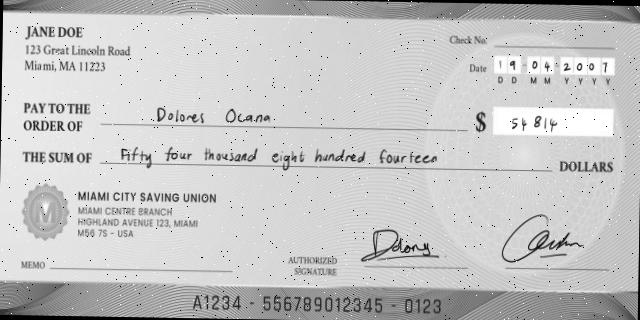 JANE DOE
123 Great Lincoln Road
Miami, MA 11223
Check No:
Date 19-04-2007
D D M M Y Y Y Y
PAY TO THE
ORDER OF Dolores Ocana
$ 54814
THE SUM OF Fifty four thousand eight hundred fourteen DOLLARS
M
MIAMI CITY SAVING UNION
MIAMI CENTRE BRANCH
HIGHLAND AVENUE 123, MIAMI
M56 7S - USA
MEMO
AUTHORIZED
SIGNATURE
A1234 - 556789012345 - 0123